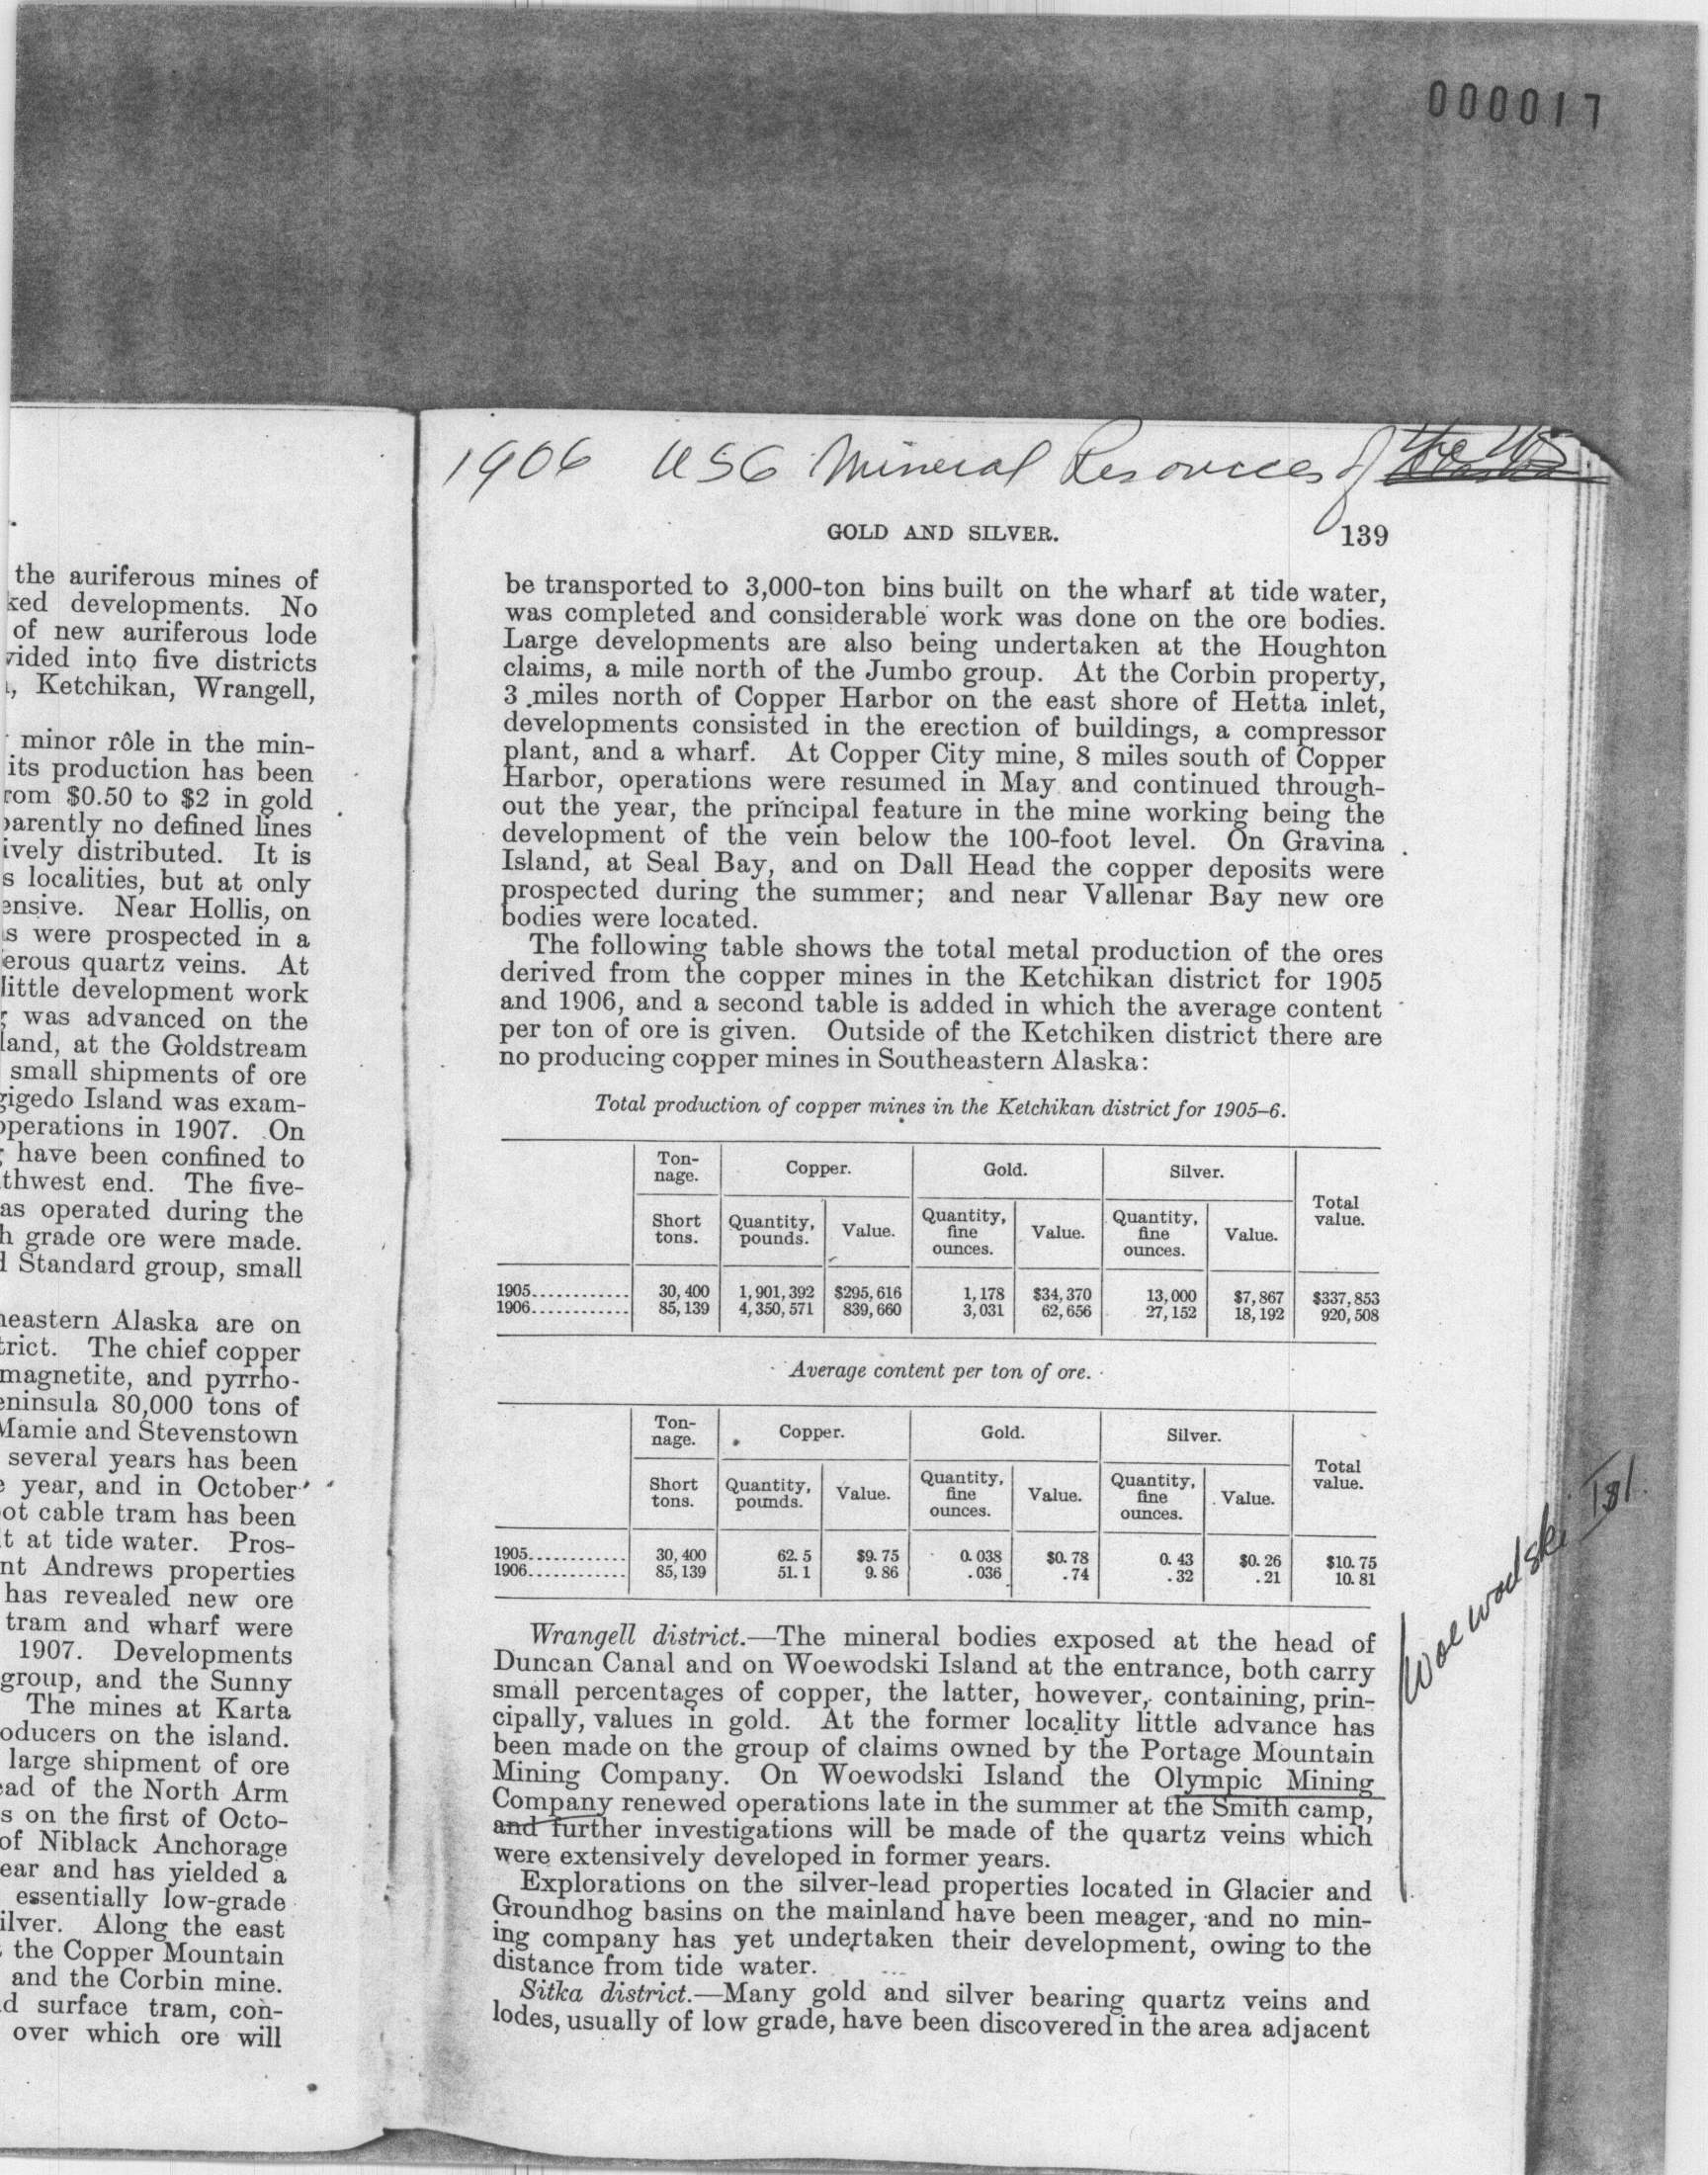 000017
1906 USG Mineral Resources of the US
the auriferous mines of
developments. No
of new auriferous lode
into five districts
Ketchikan, Wrangell,
minor rôle in the min-
its production has been
$0.50 to $2 in gold
no defined lines
distributed. It is
localities, but at only
Near Hollis, on
were prospected in a
quartz veins. At
little development work
was advanced on the
at the Goldstream
small shipments of ore
Island was exam-
operations in 1907. On
have been confined to
end. The five-
operated during the
grade ore were made.
Standard group, small
Alaska are on
The chief copper
magnetite, and pyrrho-
80,000 tons of
Mamie and Stevenstown
several years has been
year, and in October
cable tram has been
at tide water. Pros-
Andrews properties
has revealed new ore
tram and wharf were
1907. Developments
group, and the Sunny
The mines at Karta
on the island.
large shipment of ore
of the North Arm
on the first of Octo-
of Niblack Anchorage
and has yielded a
essentially low-grade
Along the east
the Copper Mountain
and the Corbin mine.
surface tram, con-
over which ore will
GOLD AND SILVER. 139
be transported to 3,000-ton bins built on the wharf at tide water,
was completed and considerable work was done on the ore bodies.
Large developments are also being undertaken at the Houghton
claims, a mile north of the Jumbo group. At the Corbin property,
3 miles north of Copper Harbor on the east shore of Hetta inlet,
developments consisted in the erection of buildings, a compressor
plant, and a wharf. At Copper City mine, 8 miles south of Copper
Harbor, operations were resumed in May and continued through-
out the year, the principal feature in the mine working being the
development of the vein below the 100-foot level. On Gravina
Island, at Seal Bay, and on Dall Head the copper deposits were
prospected during the summer; and near Vallenar Bay new ore
bodies were located.
The following table shows the total metal production of the ores
derived from the copper mines in the Ketchikan district for 1905
and 1906, and a second table is added in which the average content
per ton of ore is given. Outside of the Ketchiken district there are
no producing copper mines in Southeastern Alaska:
Total production of copper mines in the Ketchikan district for 1905–6.
Ton-nage. Copper. Gold. Silver. Total value.
Short tons. Quantity, pounds. Value. Quantity, fine ounces. Value. Quantity, fine ounces. Value.
1905............ 30,400 1,901,392 $295,616 1,178 $34,370 13,000 $7,867 $337,853
1906............ 85,139 4,350,571 839,660 3,031 62,656 27,152 18,192 920,508
Average content per ton of ore.
Ton-nage. Copper. Gold. Silver. Total value.
Short tons. Quantity, pounds. Value. Quantity, fine ounces. Value. Quantity, fine ounces. Value.
1905............ 30,400 62.5 $9.75 0.038 $0.78 0.43 $0.26 $10.75
1906............ 85,139 51.1 9.86 .036 .74 .32 .21 10.81
Wrangell district.—The mineral bodies exposed at the head of
Duncan Canal and on Woewodski Island at the entrance, both carry
small percentages of copper, the latter, however, containing, prin-
cipally, values in gold. At the former locality little advance has
been made on the group of claims owned by the Portage Mountain
Mining Company. On Woewodski Island the Olympic Mining
Company renewed operations late in the summer at the Smith camp,
and further investigations will be made of the quartz veins which
were extensively developed in former years.
Explorations on the silver-lead properties located in Glacier and
Groundhog basins on the mainland have been meager, and no min-
ing company has yet undertaken their development, owing to the
distance from tide water.
Sitka district.—Many gold and silver bearing quartz veins and
lodes, usually of low grade, have been discovered in the area adjacent
Woewodski Isl.